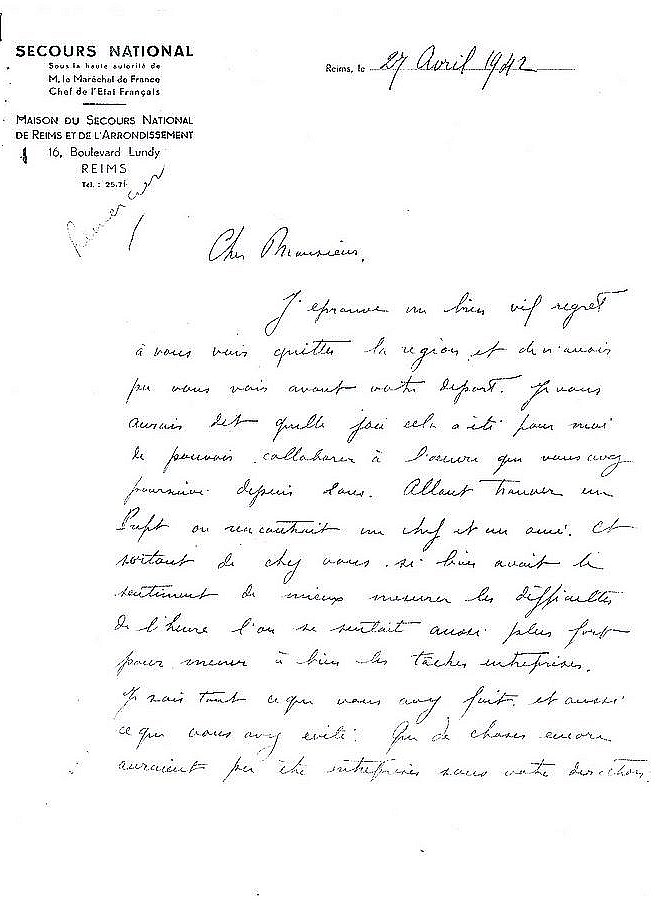 SECOURS NATIONAL
Sous la haute autorité de
M. le Maréchal de France
Chef de l'Etat Français
MAISON DU SECOURS NATIONAL
DE REIMS ET DE L'ARRONDISSEMENT
16, Boulevard Lundy
REIMS
Tél. : 25.71
Reims, le 27 Avril 1942
Remercier
Cher Monsieur,
J'eprouve un bien vif regret
à vous voir quitter la région et de n'avoir
pu vous voir avant votre depart. Je vous
aurais dit quelle joie cela a été pour moi
de pouvoir collaborer à l'oeuvre que vous avez
poursuivie depuis 2 ans. Allant trouver un
Préfet on rencontrait un chef et un ami. Et
sortant de chez vous, si l'on avait le
sentiment de mieux mesurer les difficultés
de l'heure l'on se sentait aussi plus fort
pour mener à bien les tâches entreprises.
Je sais tout ce que vous avez fait, et aussi
ce que vous avez evité. Que de choses encore
auraient pu être entreprises sous votre direction.